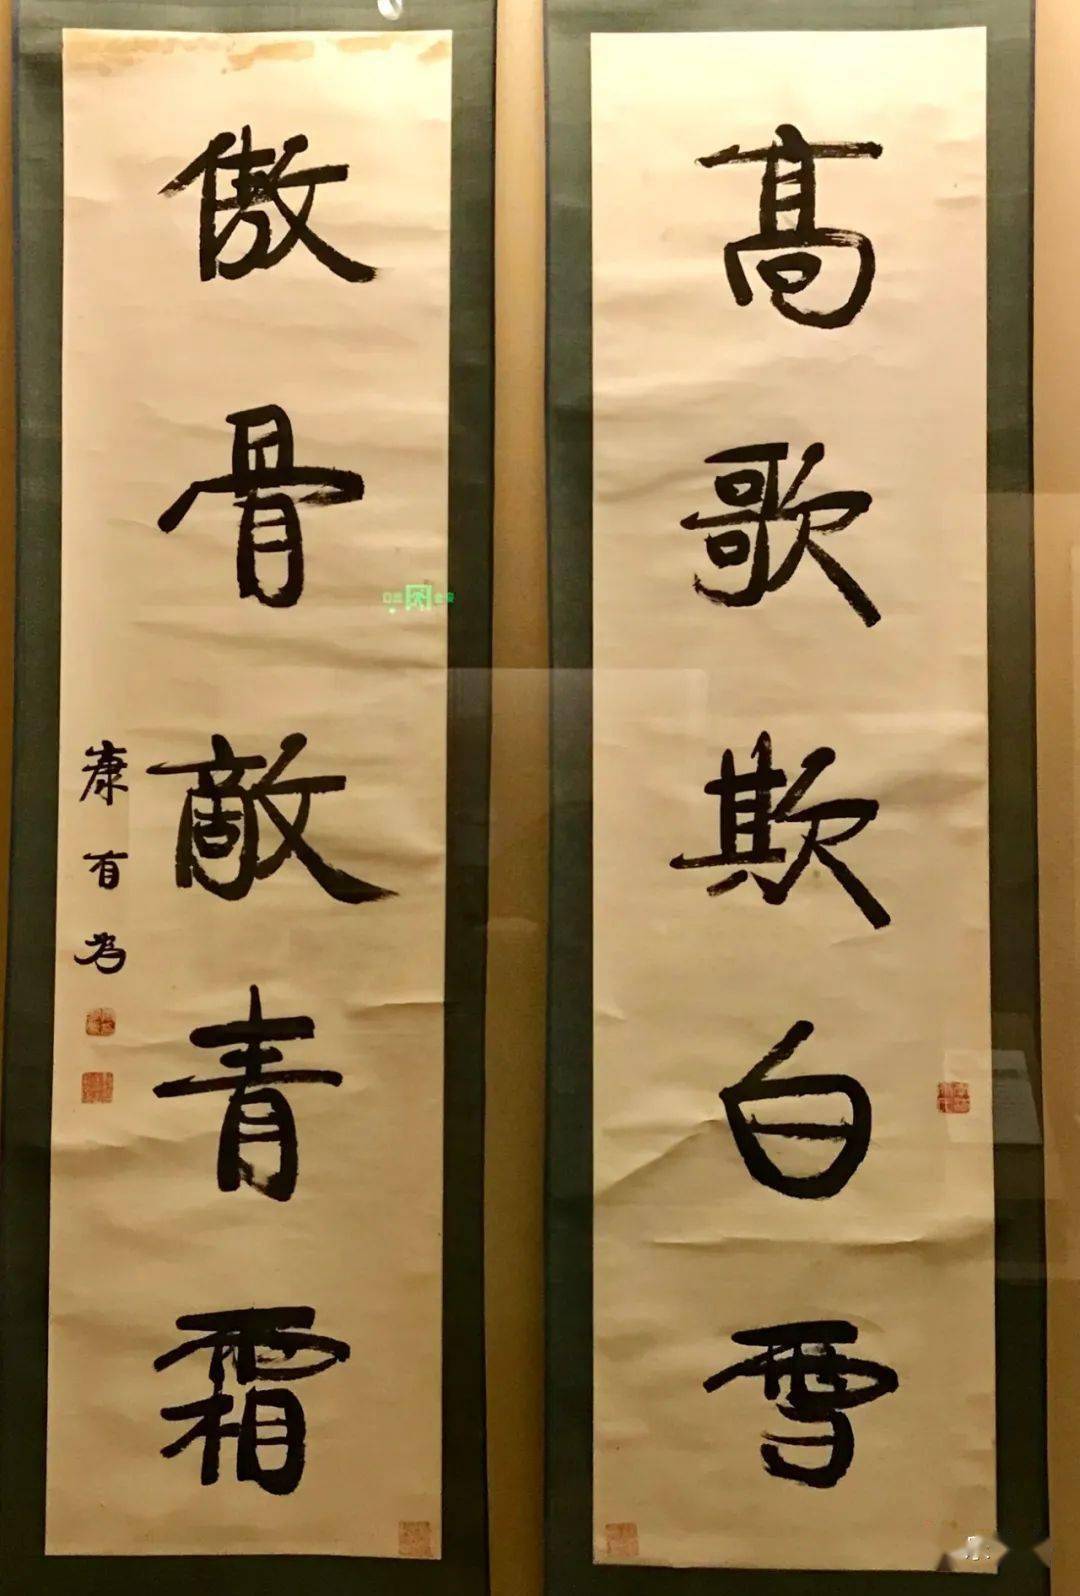 高歌欺白雪
傲骨敵青霜
康有為